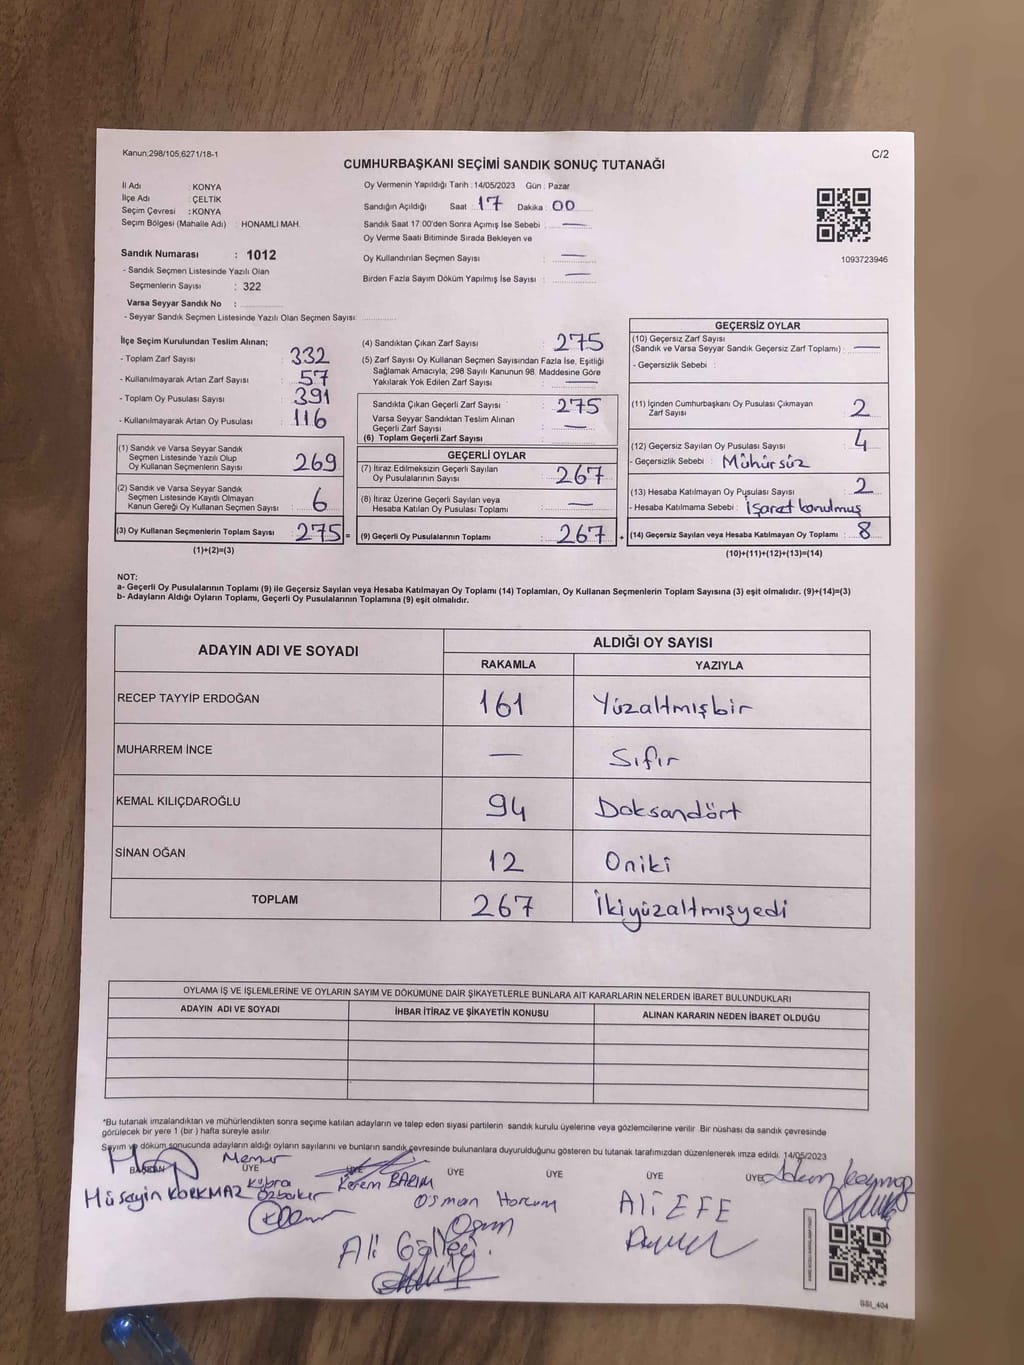 Kanun:298/105;6271/18-1
C/2
CUMHURBAŞKANI SEÇİMİ SANDIK SONUÇ TUTANAĞI
İl Adı : KONYA
İlçe Adı : ÇELTİK
Seçim Çevresi : KONYA
Seçim Bölgesi (Mahalle Adı) : HONAMLI MAH.
Sandık Numarası : 1012
- Sandık Seçmen Listesinde Yazılı Olan
Seçmenlerin Sayısı : 322
Varsa Seyyar Sandık No :
- Seyyar Sandık Seçmen Listesinde Yazılı Olan Seçmen Sayısı:
Oy Vermenin Yapıldığı Tarih : 14/05/2023 Gün : Pazar
Sandığın Açıldığı Saat : 17 Dakika : 00
Sandık Saat 17:00'den Sonra Açımış İse Sebebi : —
Oy Verme Saati Bitiminde Sırada Bekleyen ve
Oy Kullandırılan Seçmen Sayısı : —
Birden Fazla Sayım Döküm Yapılmış İse Sayısı : —
1093723946
İlçe Seçim Kurulundan Teslim Alınan;
- Toplam Zarf Sayısı : 332
- Kullanılmayarak Artan Zarf Sayısı : 57
- Toplam Oy Pusulası Sayısı : 391
- Kullanılmayarak Artan Oy Pusulası : 116
(1) Sandık ve Varsa Seyyar Sandık
Seçmen Listesinde Yazılı Olup
Oy Kullanan Seçmenlerin Sayısı 269
(2) Sandık ve Varsa Seyyar Sandık
Seçmen Listesinde Kayıtlı Olmayan
Kanun Gereği Oy Kullanan Seçmen Sayısı : 6
(3) Oy Kullanan Seçmenlerin Toplam Sayısı : 275 =
(1)+(2)=(3)
(4) Sandıktan Çıkan Zarf Sayısı : 275
(5) Zarf Sayısı Oy Kullanan Seçmen Sayısından Fazla İse, Eşitliği
Sağlamak Amacıyla; 298 Sayılı Kanunun 98. Maddesine Göre
Yakılarak Yok Edilen Zarf Sayısı : —
Sandıkta Çıkan Geçerli Zarf Sayısı : 275
Varsa Seyyar Sandıktan Teslim Alınan
Geçerli Zarf Sayısı : —
(6) Toplam Geçerli Zarf Sayısı :
GEÇERLİ OYLAR
(7) İtiraz Edilmeksizin Geçerli Sayılan
Oy Pusulalarının Sayısı : 267
(8) İtiraz Üzerine Geçerli Sayılan veya
Hesaba Katılan Oy Pusulası Toplamı : —
(9) Geçerli Oy Pusulalarının Toplamı : 267 +
GEÇERSİZ OYLAR
(10) Geçersiz Zarf Sayısı
(Sandık ve Varsa Seyyar Sandık Geçersiz Zarf Toplamı) : —
- Geçersizlik Sebebi :
(11) İçinden Cumhurbaşkanı Oy Pusulası Çıkmayan
Zarf Sayısı : 2
(12) Geçersiz Sayılan Oy Pusulası Sayısı : 4
- Geçersizlik Sebebi : Mühürsüz
(13) Hesaba Katılmayan Oy Pusulası Sayısı : 2
- Hesaba Katılmama Sebebi : İşaret konulmuş
(14) Geçersiz Sayılan veya Hesaba Katılmayan Oy Toplamı : 8
(10)+(11)+(12)+(13)=(14)
NOT:
a- Geçerli Oy Pusulalarının Toplamı (9) ile Geçersiz Sayılan veya Hesaba Katılmayan Oy Toplamı (14) Toplamları, Oy Kullanan Seçmenlerin Toplam Sayısına (3) eşit olmalıdır. (9)+(14)=(3)
b- Adayların Aldığı Oyların Toplamı, Geçerli Oy Pusulalarının Toplamına (9) eşit olmalıdır.
ADAYIN ADI VE SOYADI ALDIĞI OY SAYISI
RAKAMLA YAZIYLA
RECEP TAYYİP ERDOĞAN 161 Yüzaltmışbir
MUHARREM İNCE — Sıfır
KEMAL KILIÇDAROĞLU 94 Doksandört
SİNAN OĞAN 12 Oniki
TOPLAM 267 İkiyüzaltmışyedi
OYLAMA İŞ VE İŞLEMLERİNE VE OYLARIN SAYIM VE DÖKÜMÜNE DAİR ŞİKAYETLERLE BUNLARA AİT KARARLARIN NELERDEN İBARET BULUNDUKLARI
ADAYIN ADI VE SOYADI İHBAR İTİRAZ VE ŞİKAYETİN KONUSU ALINAN KARARIN NEDEN İBARET OLDUĞU
*Bu tutanak imzalandıktan ve mühürlendikten sonra seçime katılan adayların ve talep eden siyasi partilerin sandık kurulu üyelerine veya gözlemcilerine verilir. Bir nüshası da sandık çevresinde
görülecek bir yere 1 (bir ) hafta süreyle asılır.
Sayım ve döküm sonucunda adayların aldığı oyların sayılarını ve bunların sandık çevresinde bulunanlara duyurulduğunu gösteren bu tutanak tarafımızdan düzenlenerek imza edildi. 14/05/2023
Memur
BAŞKAN ÜYE ÜYE ÜYE ÜYE ÜYE ÜYE
Hüseyin KORKMAZ Kübra Özbakır Kerem BARIM Osman Horcum Ali EFE
Ali
SSİ_404